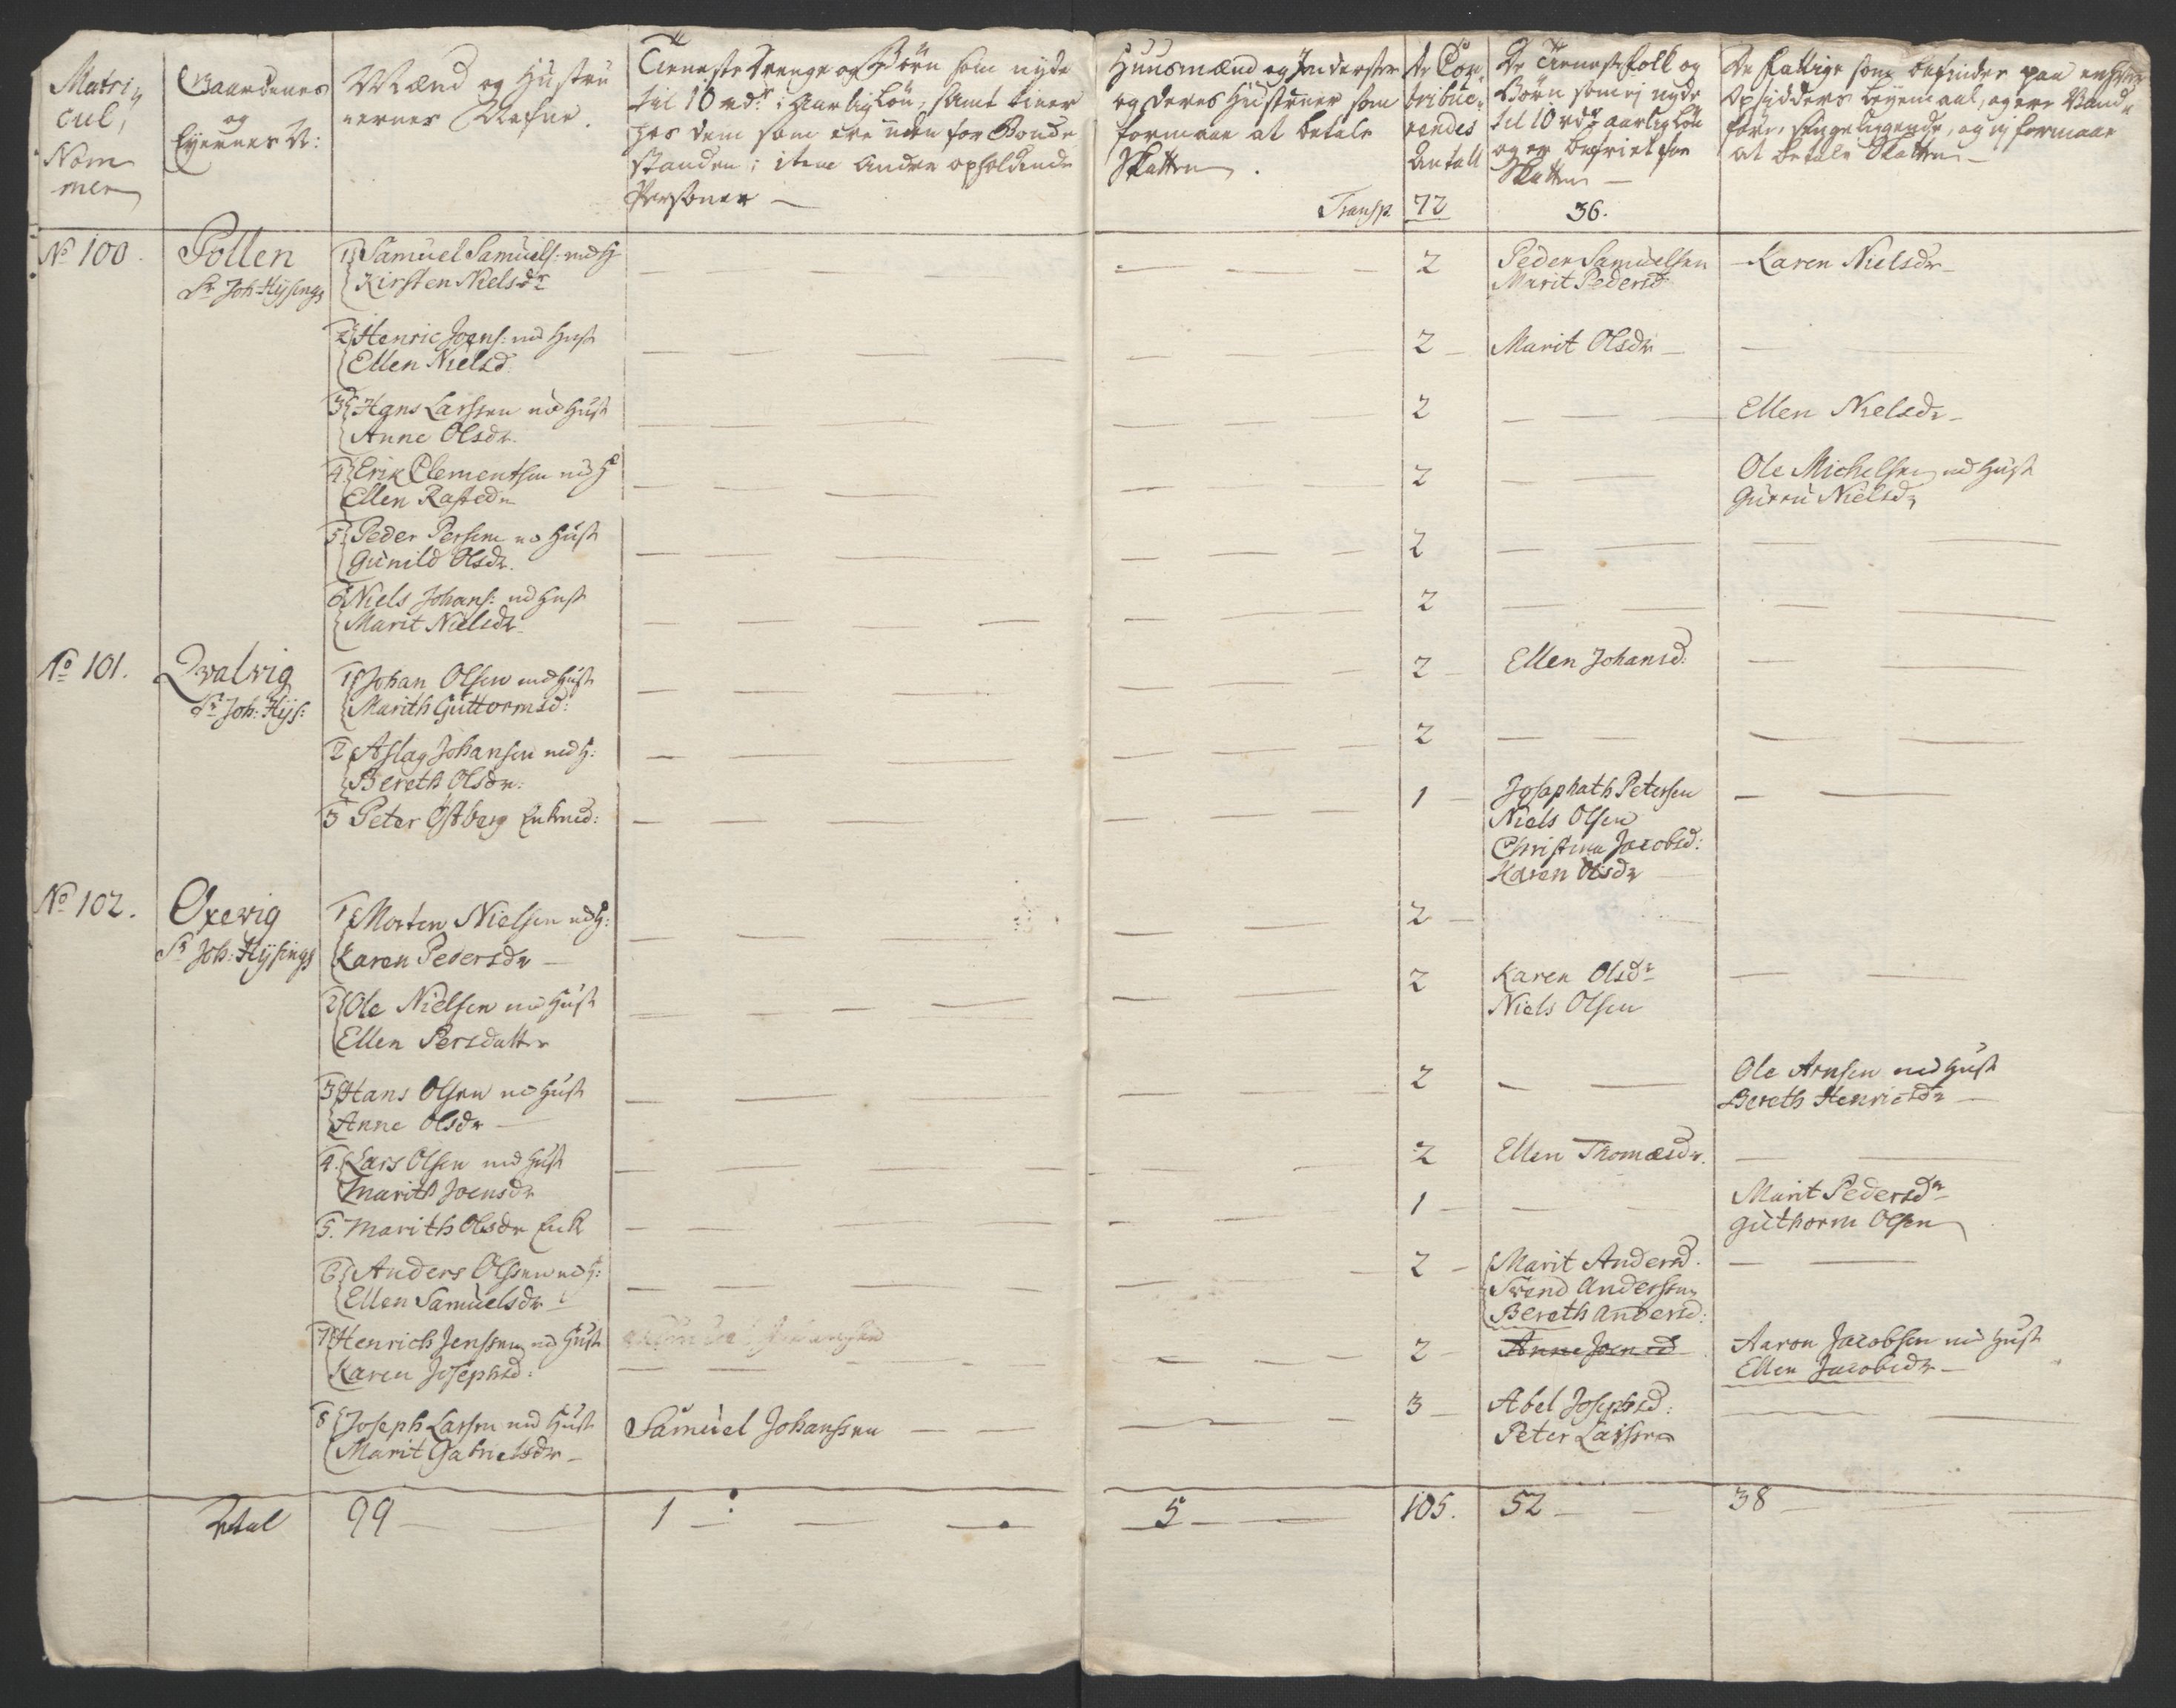 Matri-
cul,
Nom
mer
Gaardenes
og
Eyernes N:
Mænd og Hustru
ernes Nafne.
Tieneste Drenge og Børn som nyde
til 10 rdr. i Aarlig Løn, samt tiener
hos dem som ere uden for Bonde
Standen; item andre opholdende
Personer —
Huusmænd og Inderster
og deres Hustruer som
formaar at betale
Skatten.
Transp
De Con-
tribue-
rendes
Antall
72
De Tieneste folk og
Børn som ej nyde
til 10 rdr aarlig Løn
og er befriet for
Skatten —
36.
De fattige som befindes paa
Opsidders leyemaal, og ere Vand-
føre, sengeliggende, og ej formaar
at betale Skatten —
No 100.
Pollen
Sr Joh: Hysings
1 Samuel Samuels: med H
Kirsten Nielsdr
2
Peder Samuelsen
Marit Pedersd
Karen Nielsdr
2 Henric Joens: md Hust
Ellen Nielsd.
2
Marit Olsdr
3 Hans Larssen md Hust
Anne Olsdr.
2
Ellen Nielsdr
4 Erik Clementsen md H
Ellen Rastedr
2
Ole Michelsen md Hust
Gurru Nielsdr
5 Peder Persen md Hust
Gunild Olsdr.
2
6 Niels Johans: md Hust
Marit Nielsdr
2
No 101.
Qvalvig
Sr Joh: Hys:
1 Johan Olsen md Hust
Marith Guttormsd:
2
Ellen Johansd:
2 Aslag Johansen md H:
Bereth Olsdr:
2
3 Peter Østberg Enkmd:
1
Josaphath Petersen
Niels Olsen
Christina Jacobsd:
Karen Olsdr
No 102.
Oxevig
Sr Joh: Hysings
1 Morten Nielsen md H:
Karen Pedersdr
2
2 Ole Nielsen md Hust
Ellen Persdatter
2
Karen Olsdr
Niels Olsen
3 Hans Olsen md Hust
Anne Olsdr
2
Ole Arnsen md Hust
Bereth Henricsdr
4. Lars Olsen md Hust
Marith Joensdr
2
Ellen Thomæsdr.
5. Marith Olsdr Enk
1
Marit Pedersdr
Guthorm Olsen
6 Anders Olssen md H:
Ellen Samuelsdr
2
Marit Andersd.
Svend Anderssen
Bereth Andersd:
7 Henrich Jenssen md Hust
Karen Josephsd:
Samuel Johansen
2
Anne Joensd
Aaron Jacobsen md Hust
Ellen Jacobsdr
8 Joseph Larsen md Hust
Marit Gabrielsdr
Samuel Johanssen
3
Abel Josephsd:
Peter Larssen
Total
99
1
5
105.
52
38